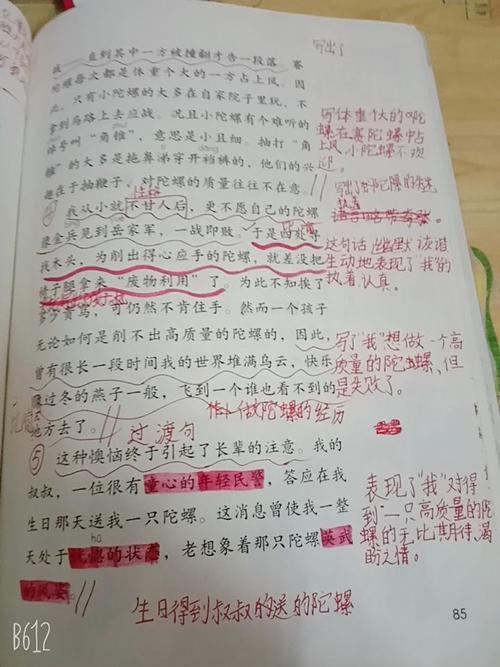 写出了
我，一直到其中一方被撞翻才告一段落。赛
陀螺每次都是体重个大的一方占上风。因
此，只有小陀螺的大多在自家院子里玩，不
拿到马路上去应战。况且小陀螺有个难听的
zhuī
绰号叫“角锥”，意思是小且细。抽打“角
锥”的大多是拖鼻涕穿开裆裤的，他们的兴
趣在于抽鞭子，对陀螺的质量往往不在意。
写体重个大的陀
螺在赛陀螺中占
上风，小陀螺不欢
迎。
④
我从小就不甘人后，更不愿自己的陀螺
像金兵见到岳家军，一战即败。于是四处寻
找木头，为削出得心应手的陀螺，就差没把
椅子腿拿来“废物利用”了。为此不知挨了
多少责骂，可仍然不肯住手。然而一个孩子
无论如何是削不出高质量的陀螺的，因此，
曾有很长一段时间我的世界堆满乌云，快乐
像过冬的燕子一般，飞到一个谁也看不到的
地方去了。
这句话幽默诙谐
生动地表现了“我”的
执着认真。
写了“我”想做一个高
质量的陀螺，但
是失败了。
做陀螺的经历
过渡句
⑤
这种懊恼终于引起了长辈的注意。我的
叔叔，一位很有童心的年轻民警，答应在我
生日那天送我一只陀螺。这消息曾使我一整
hān
天处于酣德的状态，老想象着那只陀螺英武
的风姿。
表现了“我”对得
到一只高质量的陀
螺的无比期待、渴
盼之情。
生日得到叔叔的送的陀螺
85
B612